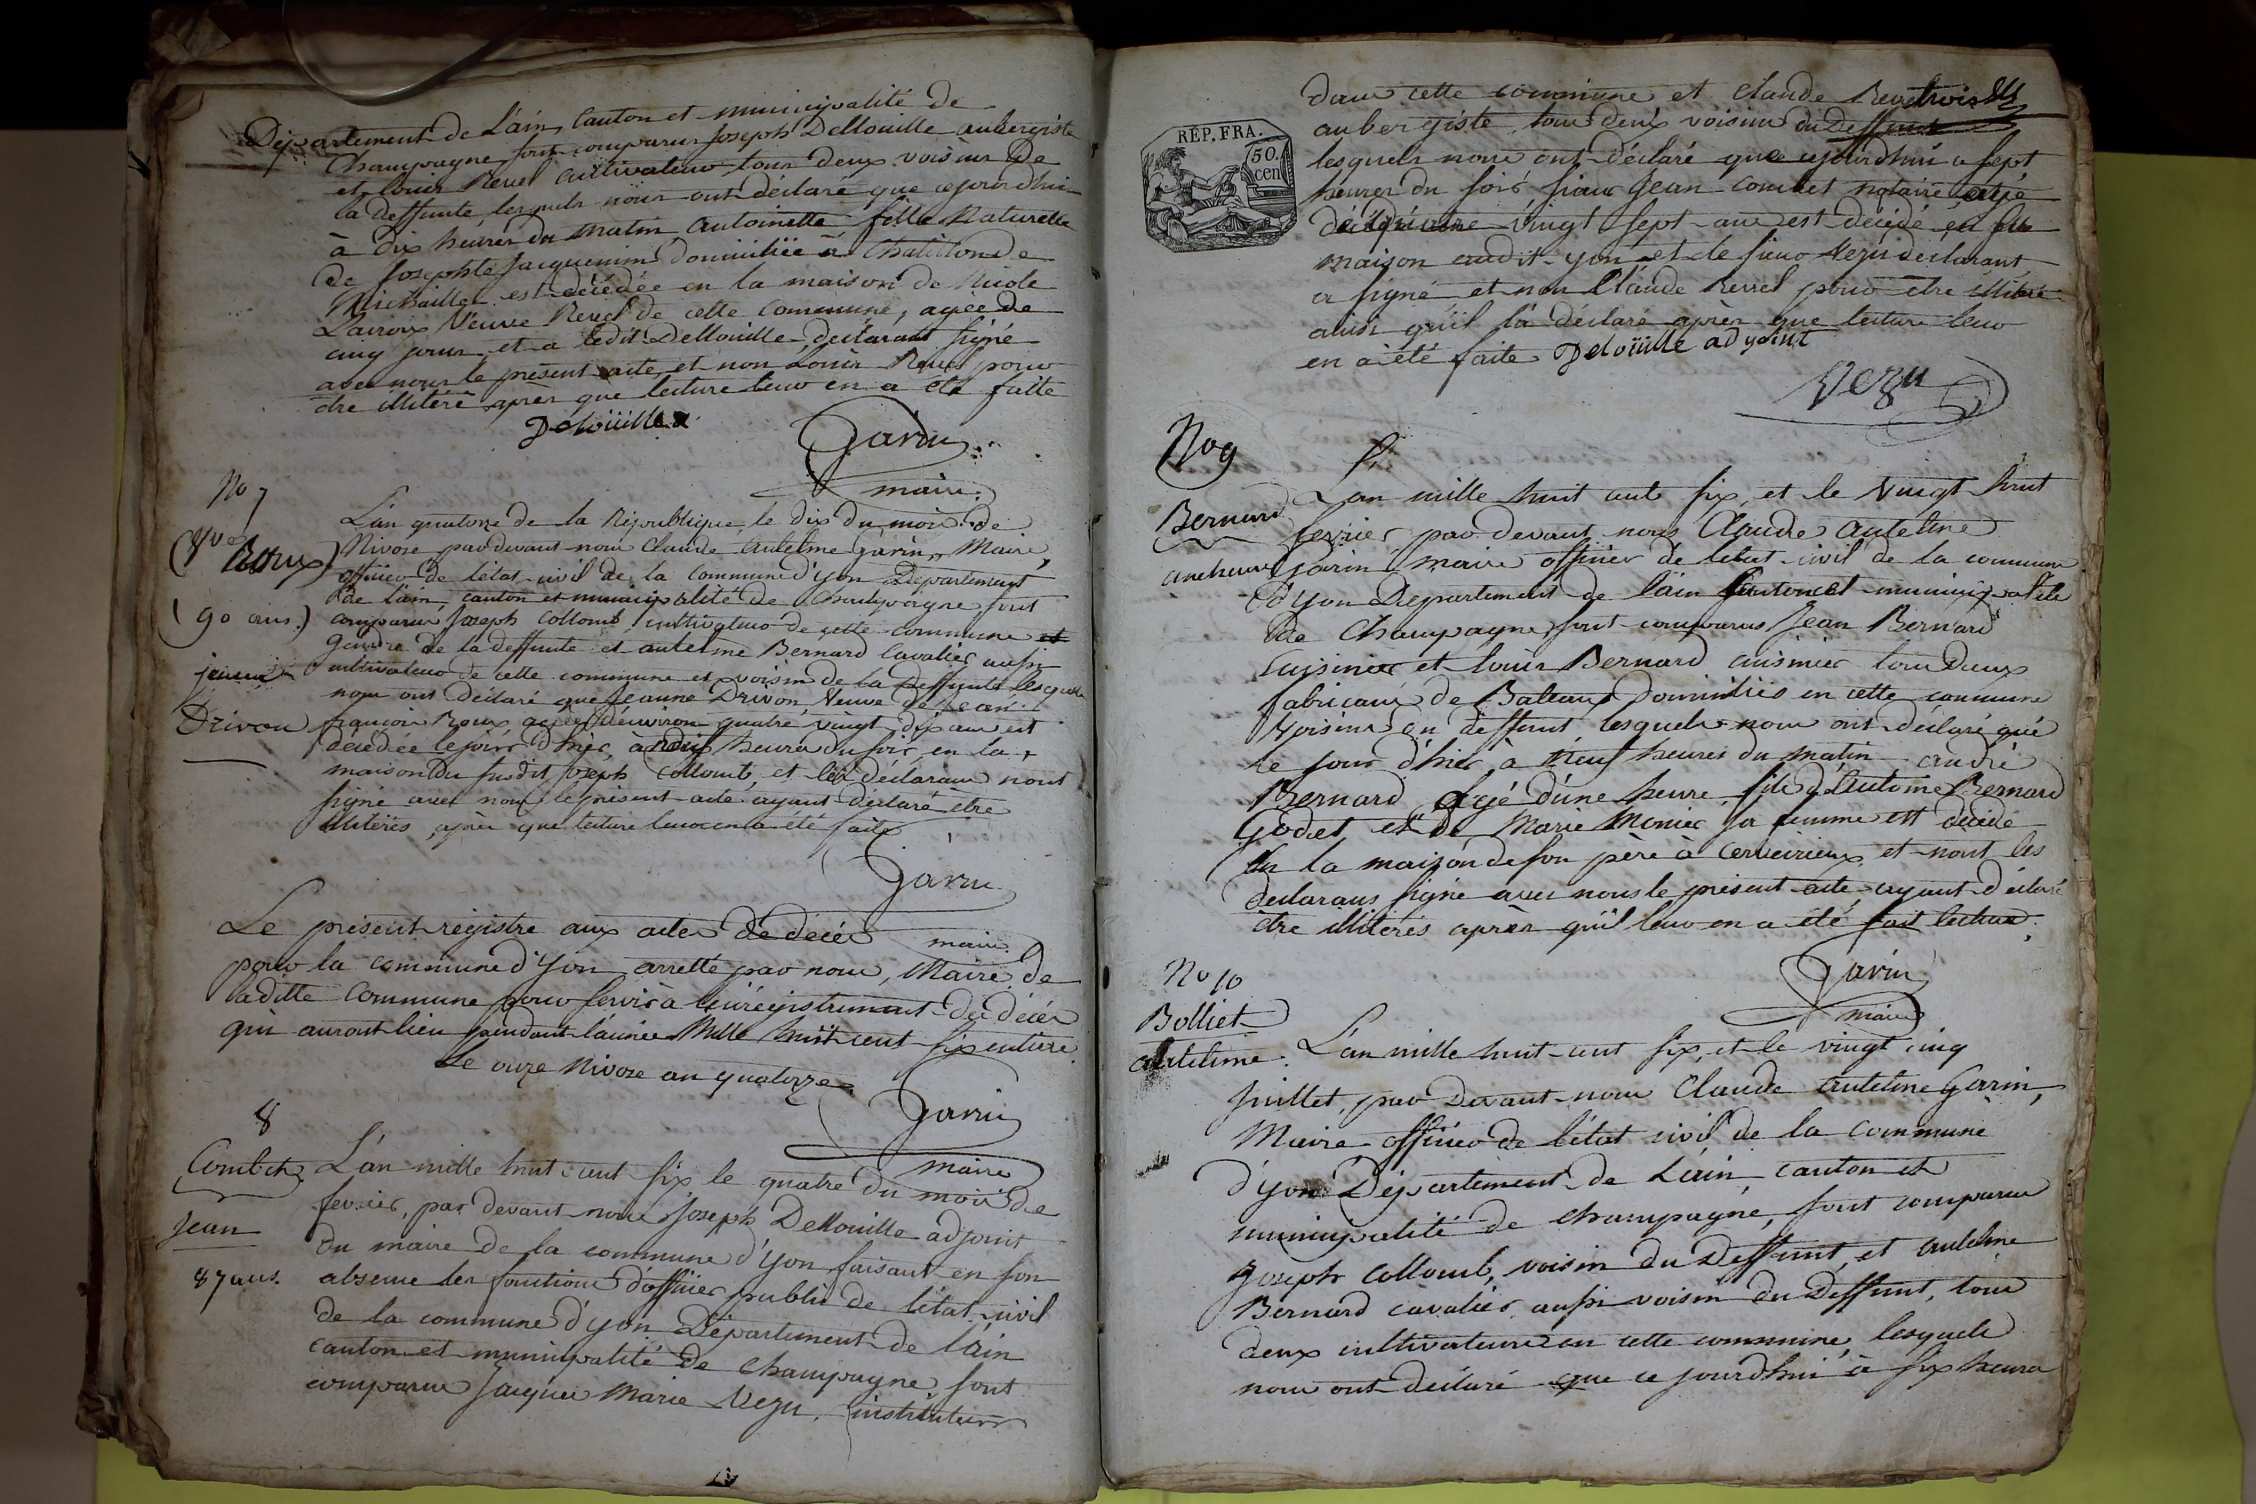 Département de Lain, Canton et municipalité de
Champagne sont comparus Joseph Dellouille aubergiste
et louis Revel cultivateur tous deux voisins de
la deffunte, lesquels nous ont déclaré que cejourdhui
à dix heures du matin Antoinette fille Naturelle
de Josephte Jacquemin domiciliée à Chatillon de
Michaille est décédée en la maison de Nicole
Lacroix Veuve Revel de cette commune, agée de
cinq jours et a ledit Dellouille déclarant signé
avec nous le présent acte et non Louis Revel pour
etre illiteré après que lecture leur en a été faitte
Deloüille
Garin
maire
No 7
(Vve Roux)
(90 ans.)
jeanne
Drivon
L'an quatorze de la République, le dix du mois de
Nivose, par devant nous Claude Antelme Garin, Maire,
officier de l'état civil de la commune d'yon Département
de l'ain, canton et municipalité de Champagne, sont
comparus Joseph Collomb, cultivateur de cette commune et
gendre de la deffunte et antelme Bernard Cavalier aussi
cultivateur de cette commune et voisin de la deffunte lesquels
nous ont déclaré que Jeanne Drivon, Veuve de Jean
françois Roux agée d'environ quatre vingt dix ans est
décédée le jour d'hier à heures du soir en la
maison du susdit joseph Collomb et les déclarans n'ont
signé avec nous le présent acte ayant déclaré être
illiterés, après que lecture leur en a été faite
Garin
maire
Le présent registre aux actes de décès
pour la commune d'Yon, arretté par nous, Maire de
ladite Commune pour servir à l'enregistrement des décès
qui auront lieu pendant l'année Mille huit cent six entière
Le onze Nivose an quatorze
Garin
maire
8
Combet
Jean
87 ans.
L'an mille huit cent six le quatre du mois de
fevrier, par devant nous Joseph Dellouille adjoint
du maire de la commune d'Yon faisant en son
absence les fonctions d'officier public de l'état civil
de la commune d'yon Département de l'ain
canton et municipalité de Champagne, sont
comparus Jacques Marie Vezu, instituteur
RÉP. FRA.
50. cen
dans cette commune et Claude Revel
aubergiste, tous deux voisins du Deffunt
lesquels nous ont déclaré que cejourdhui a sept
heures du soir sieur Jean Combet notaire agé
de quatre vingt sept ans est décédé en sa
maison audit yon et le sieur Vezu déclarant
a signé et non Claude Revel pour etre illiteré
ainsi qu'il l'a déclaré après que lecture leur
en a été faite Deloüille adjoint
Vezu
No 9
Bernard
L'an mille huit cent six, et le Vingt huit
fevrier par devant nous Claude Antelme
Garin maire officier de l'état civil de la commune
d'Yon Département de l'ain Canton et municipalité
de Champagne, sont comparus Jean Bernard
Cuisinier et Louis Bernard cuisinier tous deux
fabricans de Bateaux domiciliés en cette commune
voisins du deffunt, lesquels nous ont déclaré que
le jour d'hier à neuf heures du matin andré
Bernard agé d'une heure, fils d'Antoine Bernard
Godet et de Marie Monier sa femme est décédé
en la maison de son père à cerveirieux et n'ont les
déclarans signé avec nous le présent acte ayant déclaré
être illiterés après qu'il leur en a été fait lecture.
Garin
maire
No 10
Bolliet
antelme
L'an mille huit cent six, et le vingt cinq
juillet, par Devant nous Claude Antelme Garin,
Maire officier de l'état civil de la commune
d'Yon Département de L'ain, canton et
municipalité de Champagne, sont comparus
Joseph Collomb, voisin du Deffunt, et antelme
Bernard cavalier aussi voisin du Deffunt, tous
deux cultivateurs en cette commune, lesquels
nous ont déclaré que cejourdhui à six heures